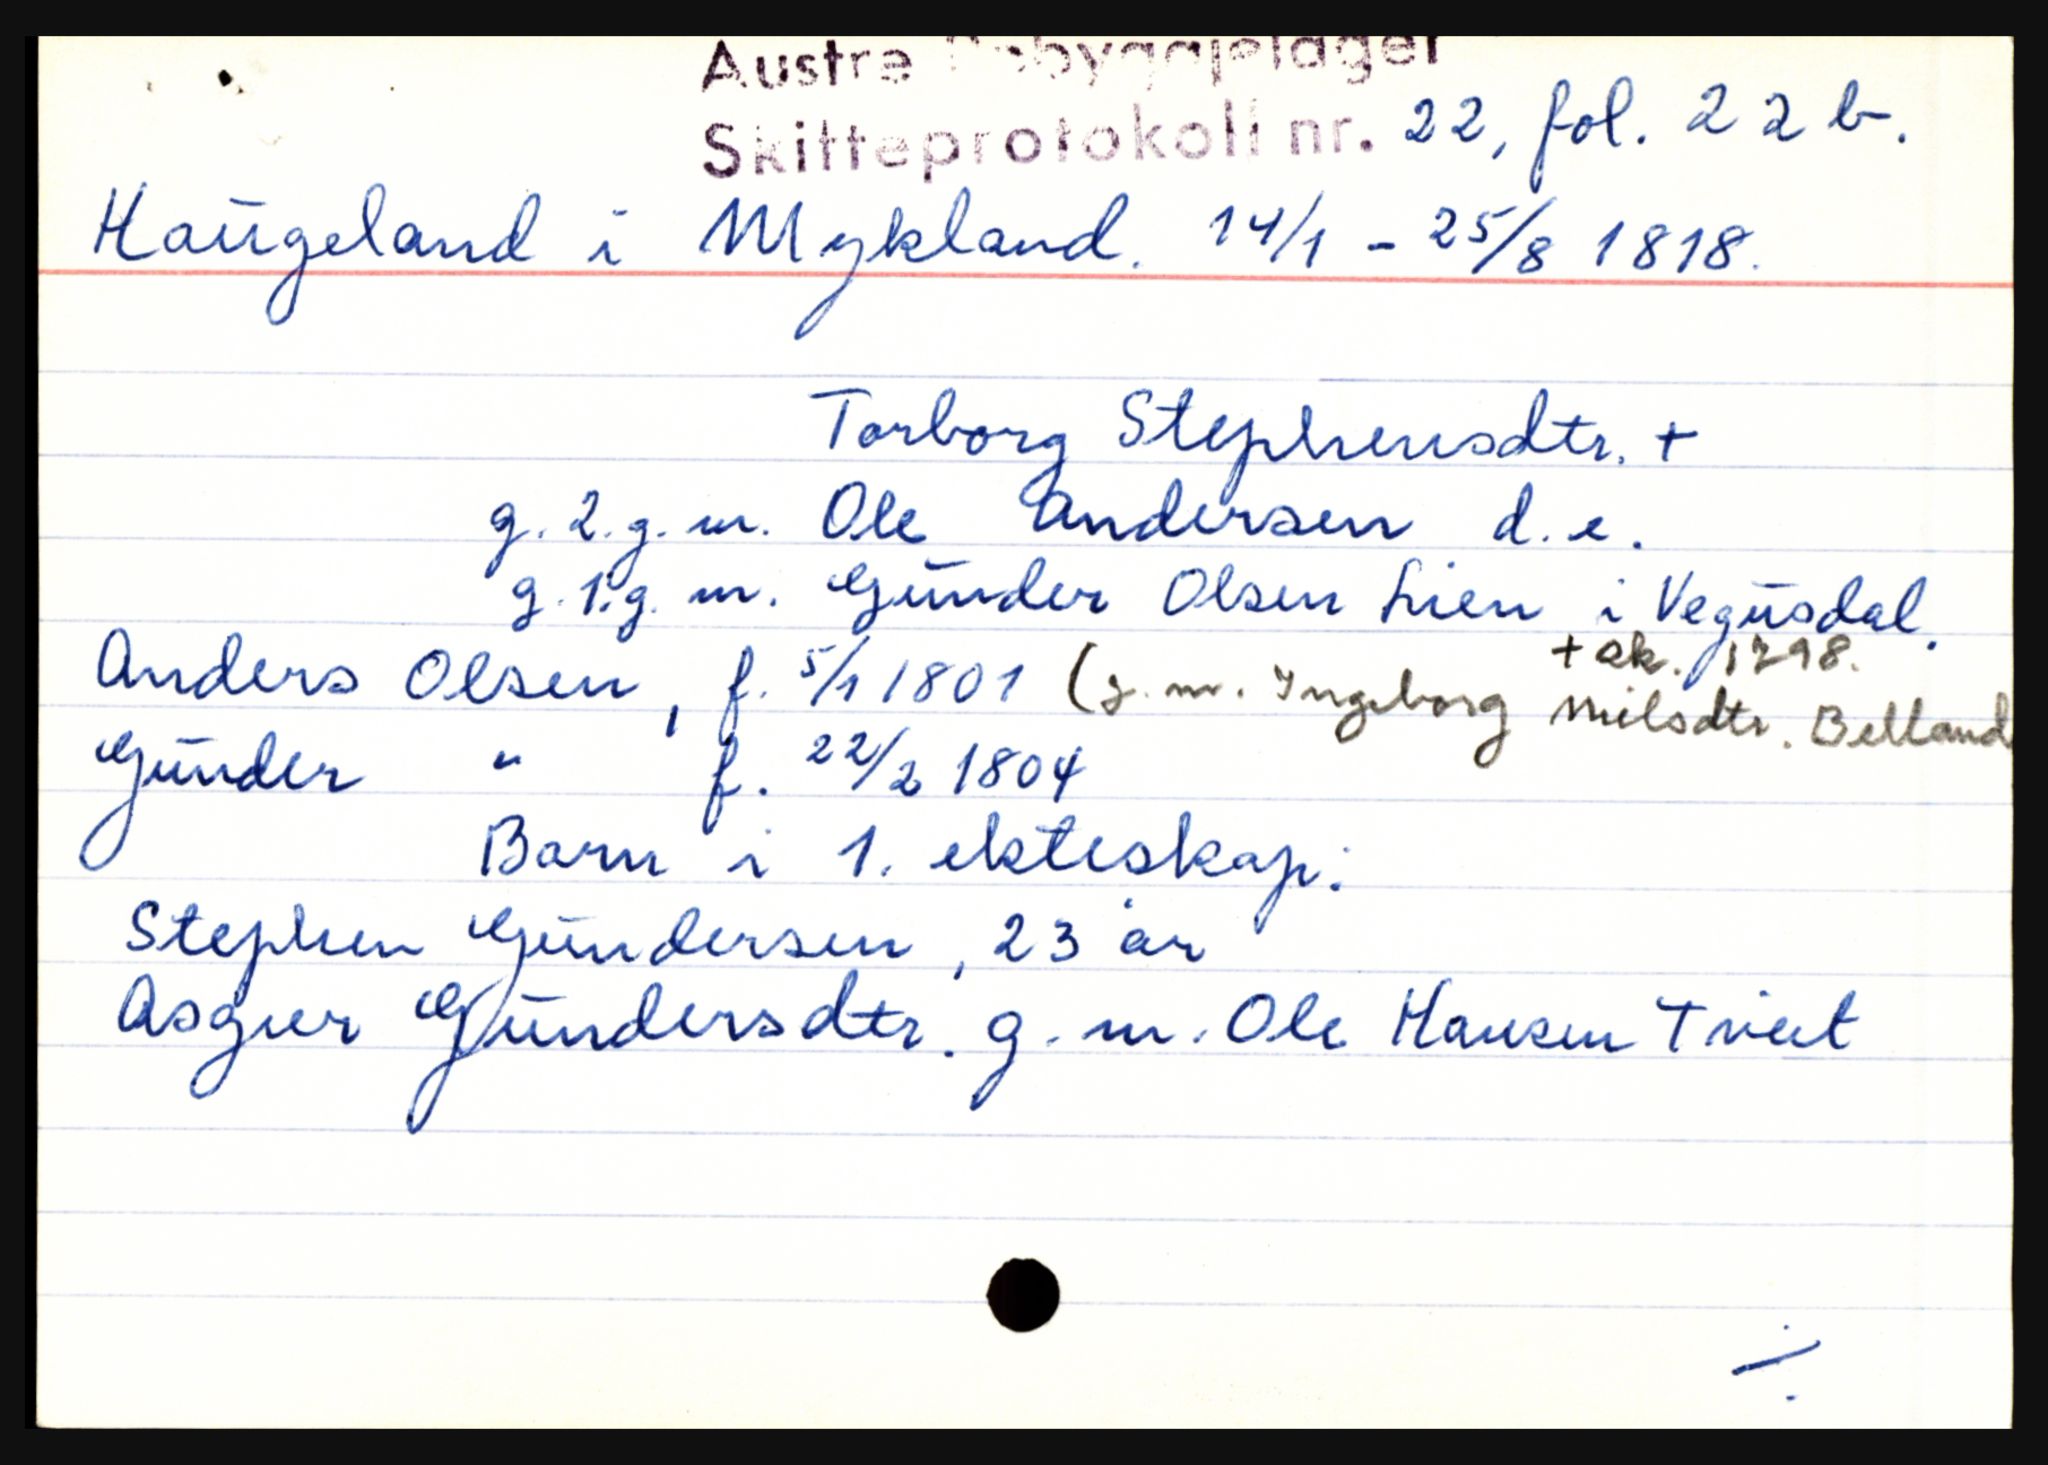 Austre Råbyggjelager
Skifteprotokoll nr. 22, fol. 22 b.
Haugeland i Mykland. 14/1 - 25/8 1818.
Torborg Stephensdtr. +
g. 2. g. m. Ole Andersen d. e.
g. 1. g. m. Gunder Olsen Lien i Vegusdal.
+ sk. 1798.
Anders Olsen, f. 5/1 1801 (g. m. Ingeborg Nilsdtr. Belland
Gunder " f. 22/2 1804
Barn i 1. ekteskap:
Stephen Gundersen, 23 år
Asgier Gundersdtr. g. m. Ole Hansen Tveit